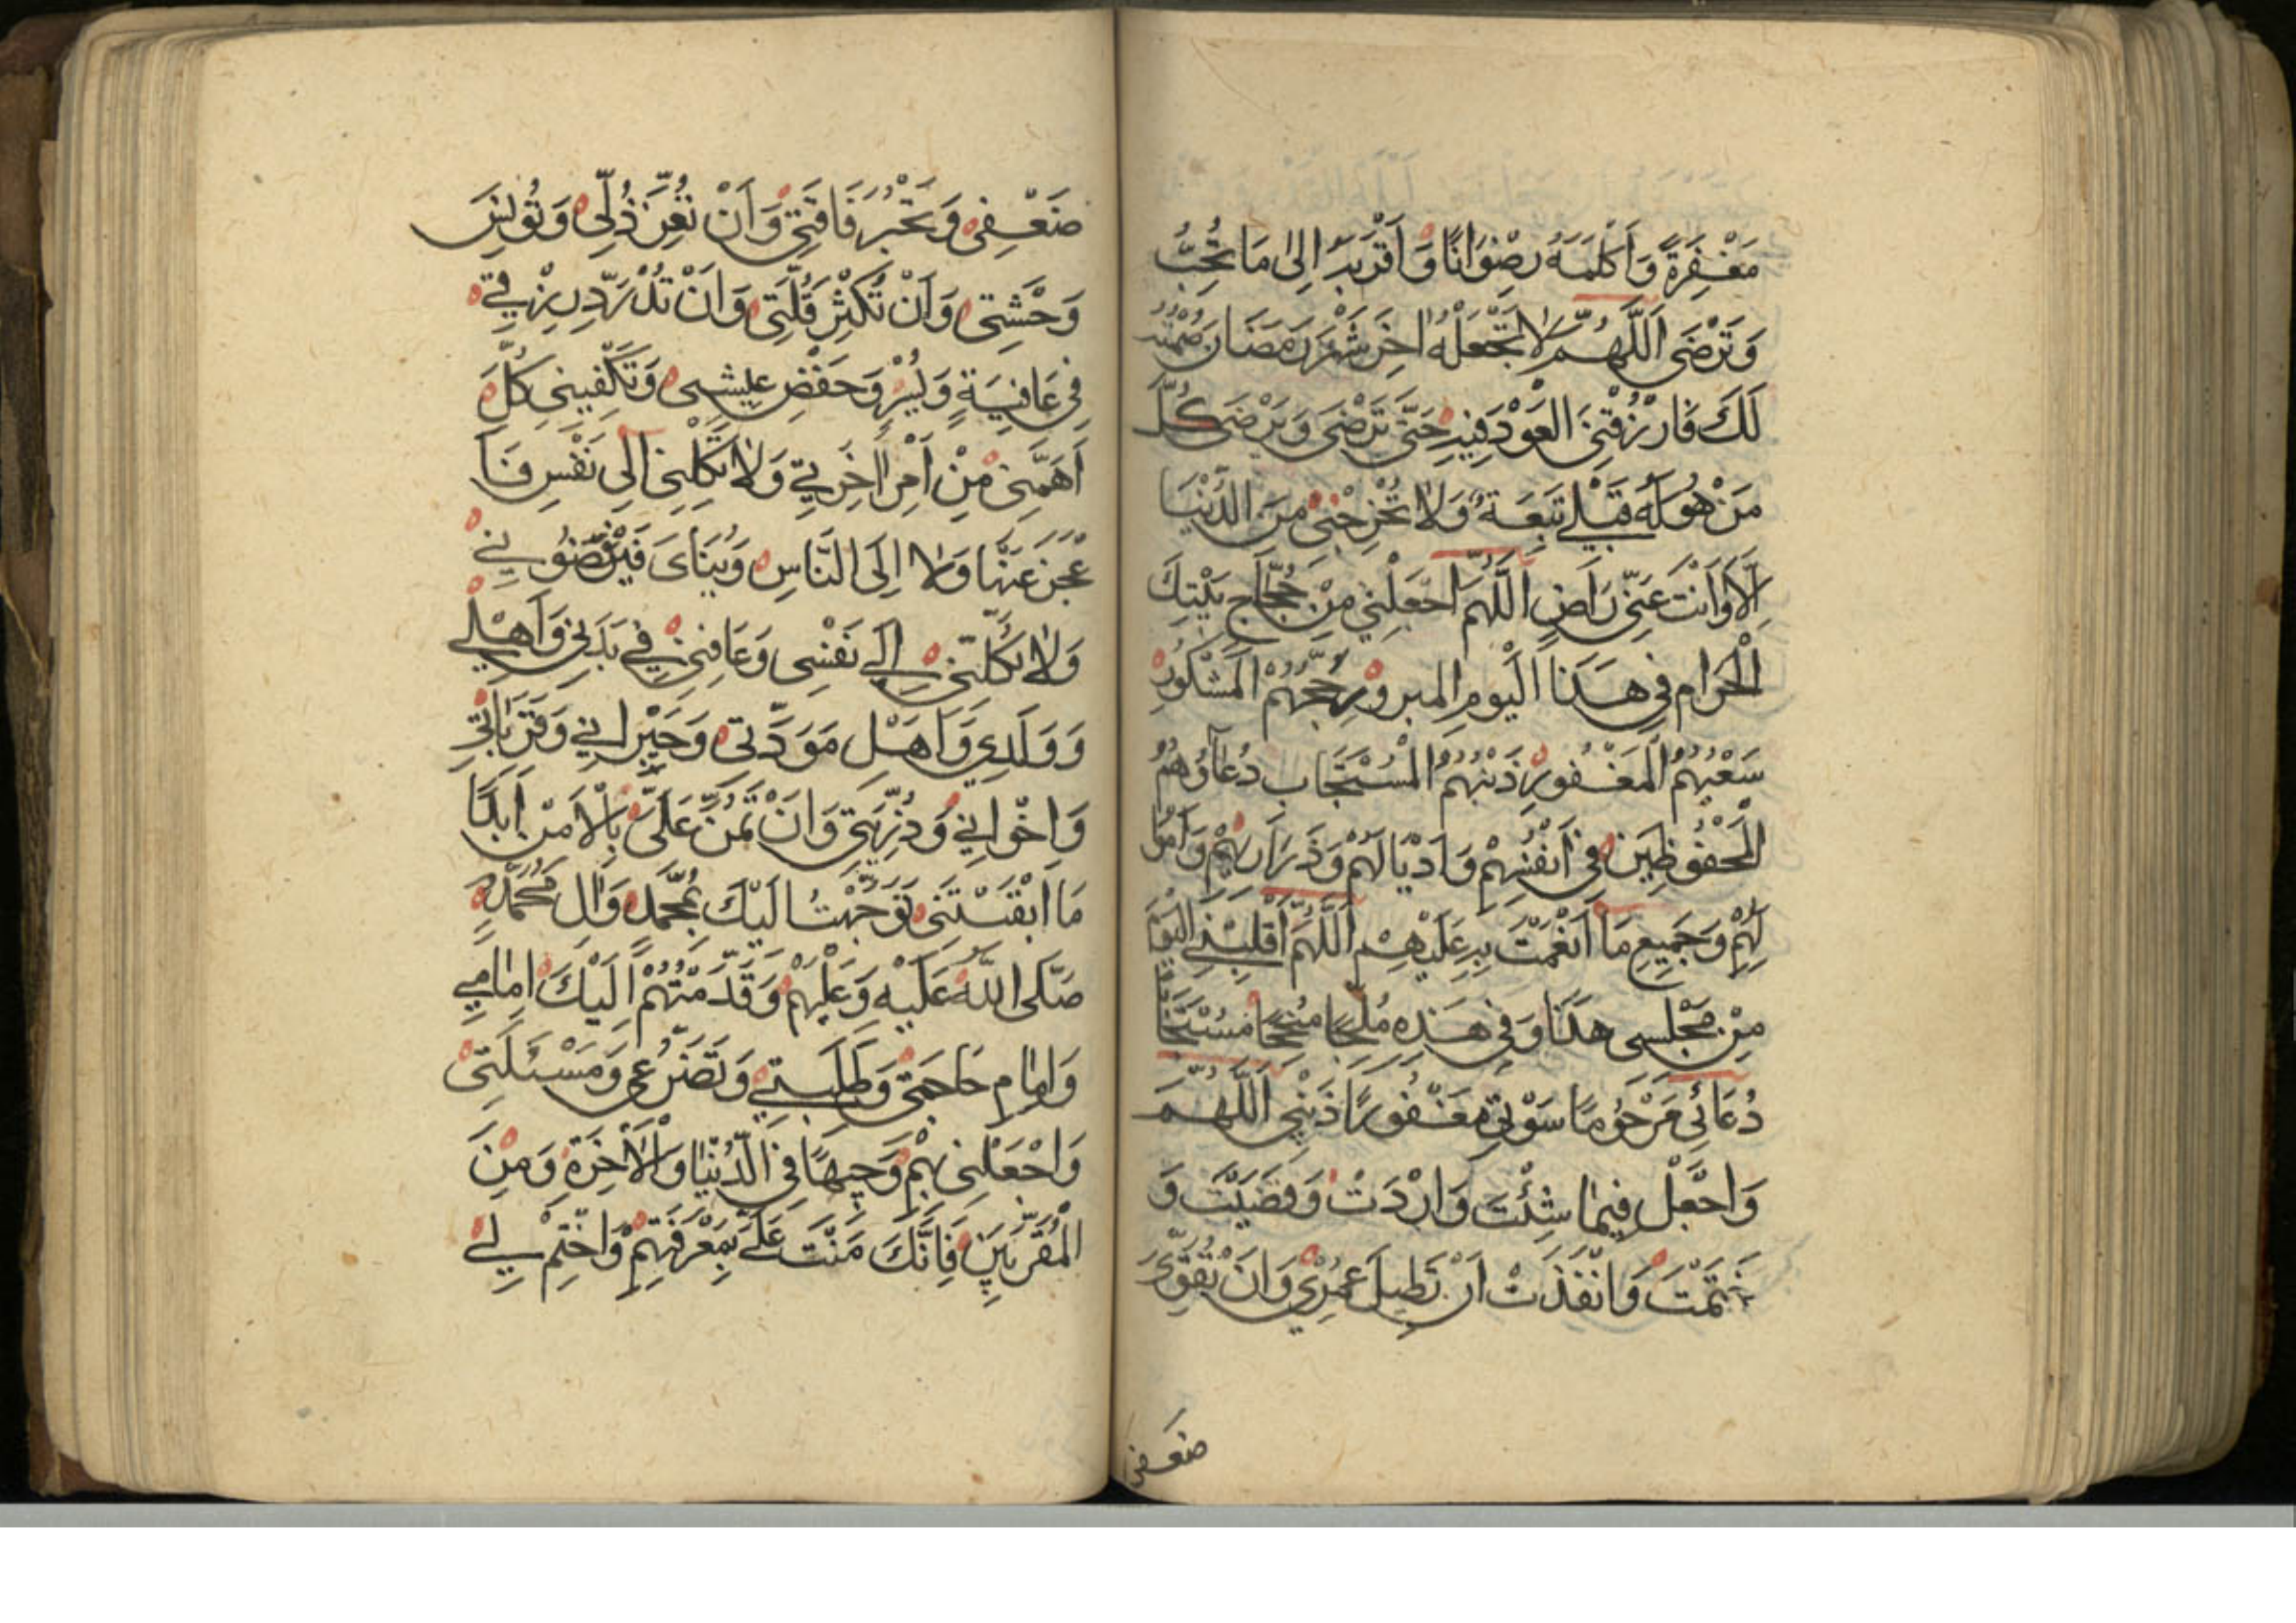 مَغْفِرَةً وَاَكْلَمَهُ رِضْوَانًا وَاَقْرَبَهُ اِلىٰ مَا تُحِبُّ
وَتَرْضَى اَللّٰهُمَّ لَا تَجْعَلْهُ اٰخِرَ شَهْرِ رَمَضَانَ صُمْتُهُ
لَكَ فَارْزُقْنِى الْعَوْدَ فِيهِ حَتّٰى تَرْضَى وَيَرْضَى كُلُّ
مَنْ هُوَ لَهُ قِبَلِى تَبِعَةٌ وَلَا تُخْرِجْنِى مِنَ الدُّنْيَا
اِلَّا وَاَنْتَ عَنِّى رَاضٍ اَللّٰهُمَّ اجْعَلْنِى مِنْ حُجَّاجِ بَيْتِكَ
الْحَرَامِ فِى هَذَا الْيَومِ المبرورِ حَجُّهُمْ الْمَشْكُورِ
سَعْيُهُمُ الْمَغْفُورِ ذَنْبُهُمُ الْمُسْتَجَابِ دُعَاؤُهُمْ
الْمَحْفُوظِينَ فِى اَنْفُسِهِمْ وَاَدْيَانِهِمْ وَذَرَارِيهِمْ وَاَمْوَا
لِهِمْ وَجَمِيعِ مَا اَنْعَمْتَ بِهِ عَلَيْهِمْ اَللّٰهُمَّ اَقْلِبْنِى الْيَوْمَ
مِنْ مَجْلِسِى هَذَا وَفِى هَذِهِ مُفْلِحًا مُنْجِحًا مُسْتَجَابًا
دُعَائِى مَرْحُومًا صَوْتِى مَغْفُورًا ذَنْبِى اَللّٰهُمَّ
وَاجْعَلْ فِيمَا شِئْتَ وَاَرَدْتَ وَقَضَيْتَ وَ
حَتَمْتَ وَاَنْفَذْتَ اَنْ تُطِيلَ عُمْرِى وَاَنْ تُقَوِّىَ
ضعفى
ضَعْفِى وَتَجْبُرَ فَاقَتِى وَاَنْ تُعِزَّ ذُلِّى وَتُونِسَ
وَحْشَتِى وَاَنْ تُكْثِرَ قِلَّتِى وَاَنْ تُدِرَّ رِزْقِى
فِى عَافِيَةٍ وَيُسْرٍ وَخَفْضِ عيشى وَتَكْفِيَنِى كُلَّ
اَهَمَّنِى مِنْ اَمْرِ اٰخِرَتِى وَلَا تَكِلْنِى اِلى نَفْسِى فَاَ
عْجِزَ عَنْهَا وَلَا اِلَى النَّاسِ وَيَنَاىَ فَيَرْفُضُونِى
وَلَا تَكِلْنِى اِلَى نَفْسِى وَعَافِنِى فِى بَدَنِى وَاَهْلِى
وَوَلَدِى وَاَهْلِ مَوَدَّتِى وَجِيْرَانِى وَقَرَابَاتِى
وَاِخْوَانِى وَذُرِّيَّتِى وَاَنْ تَمُنَّ عَلَىَّ بِالْاَمْنِ اَبَدًا
مَا اَبْقَيْتَنِى تَوَجَّهْتُ اِلَيْكَ بِمُحَمَّدٍ وَاٰلِ مُحَمَّدٍ
صَلَّى اللّٰهُ عَلَيْهِ وَعَلَيْهِمْ وَقَدَّمْتُهُمْ اِلَيْكَ اَمَامِى
وَاَمَامَ حَاجَتِى وَطَلِبَتِى وَتَضَرُّعِى وَمَسْئَلَتِى
وَاجْعَلْنِى بِهِمْ وَجِيهًا فِى الدُّنْيَا وَالْاٰخِرَةِ وَمِنَ
الْمُقَرَّبِينَ فَاِنَّكَ مَنَنْتَ عَلَىَّ بِمَعْرِفَتِهِمْ وَاخْتِمْ لِى